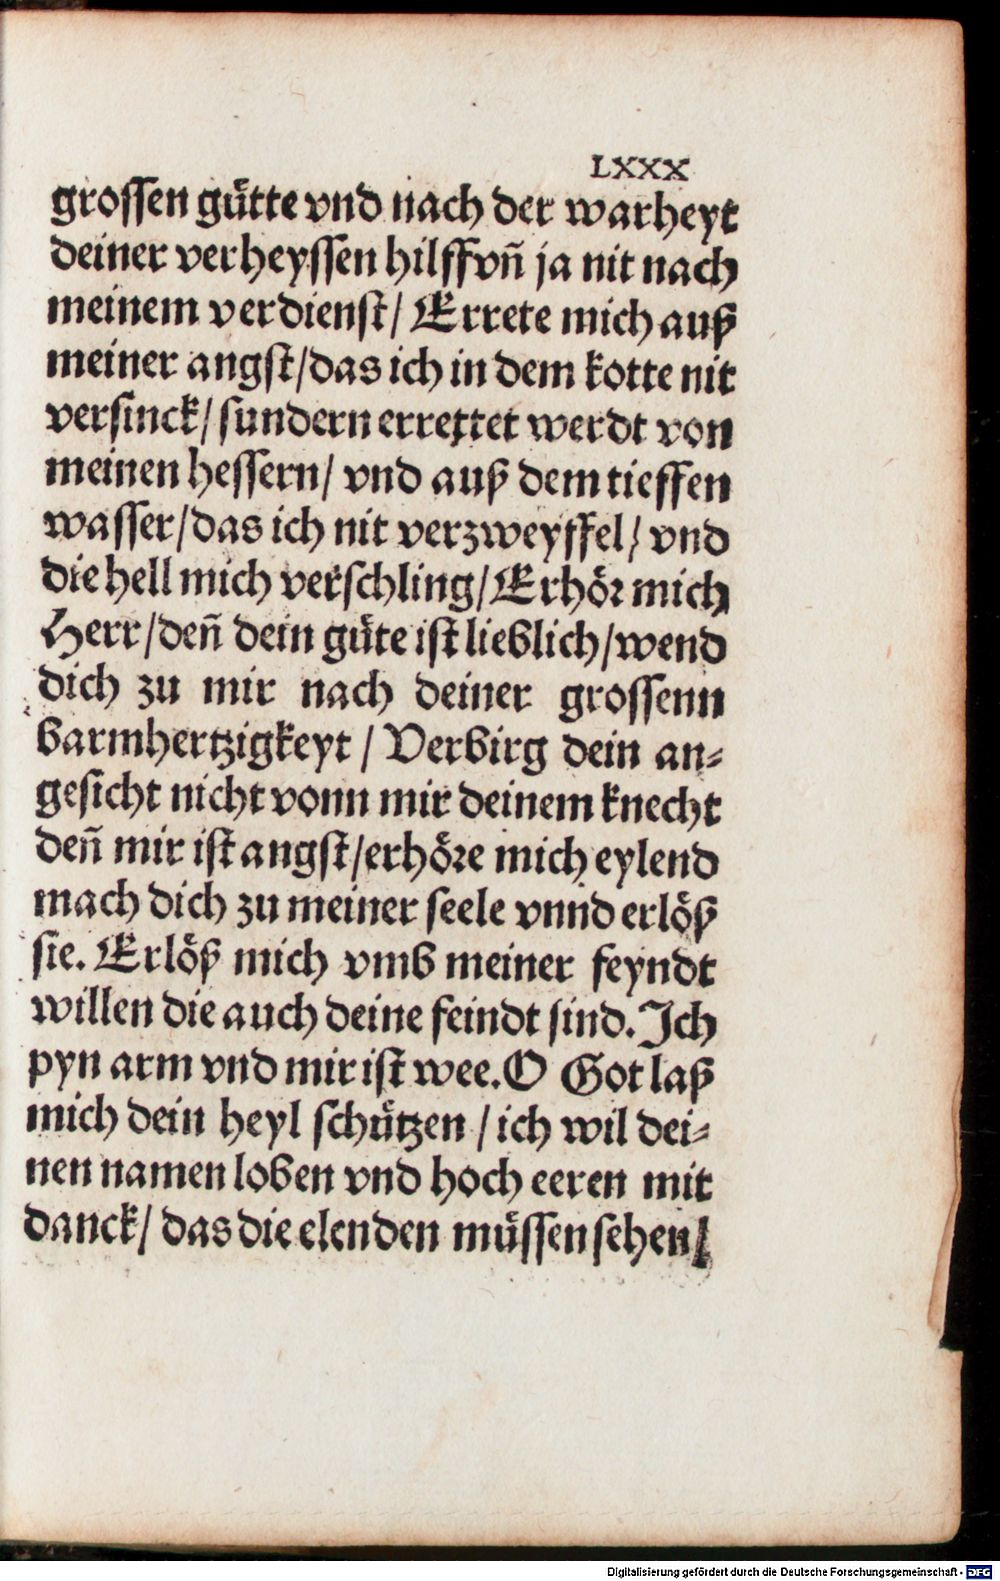 LXXX
grossen guͤtte vnd nach der warheyt
deiner verheyssen hilff vñ ja nit nach
meinem verdienst/ Errete mich auß
meiner angst/das ich in dem kotte nit
versinck/ sundern errettet werdt von
meinen hessern/ vnd auß dem tieffen
wasser/das ich nit verzweyffel/ vnd
die hell mich verschling/Erhoͤr mich
Herr/deñ dein guͤte ist lieblich/wend
dich zu mir nach deiner grossenn
barmhertzigkeyt / Verbirg dein an⸗
gesicht nicht vonn mir deinem knecht
deñ mir ist angst/erhoͤre mich eylend
mach dich zu meiner seele vnnd erloͤß
sie. Erloͤß mich vmb meiner feyndt
willen die auch deine feindt sind. Ich
pyn arm vnd mir ist wee. O Got laß
mich dein heyl schuͤtzen / ich wil dei⸗
nen namen loben vnd hoch eeren mit
danck/ das die elenden muͤssen sehen/
Digitalisierung gefördert durch die Deutsche Forschungsgemeinschaft - DFG